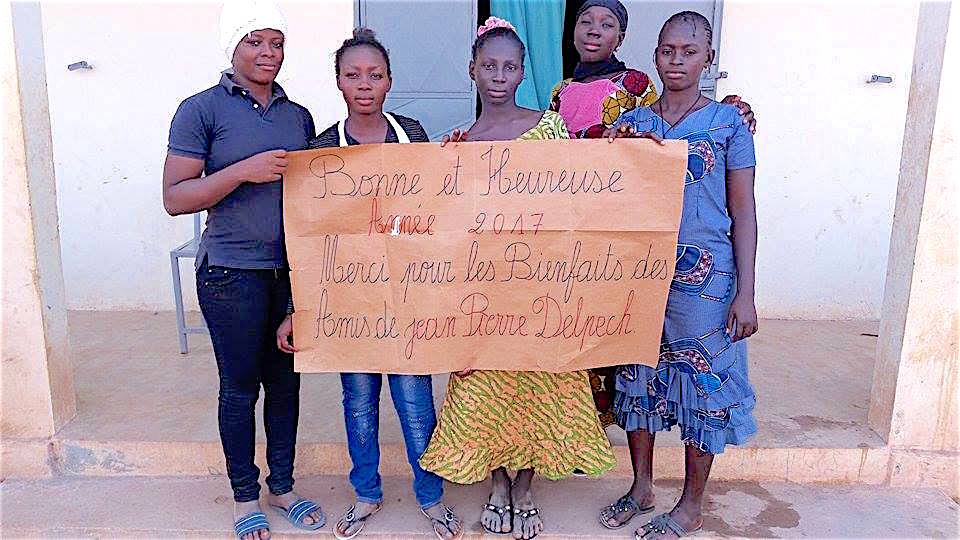 Bonne et Heureuse
Année 2017
Merci pour les Bienfaits des
Amis de jean Pierre Delpech.